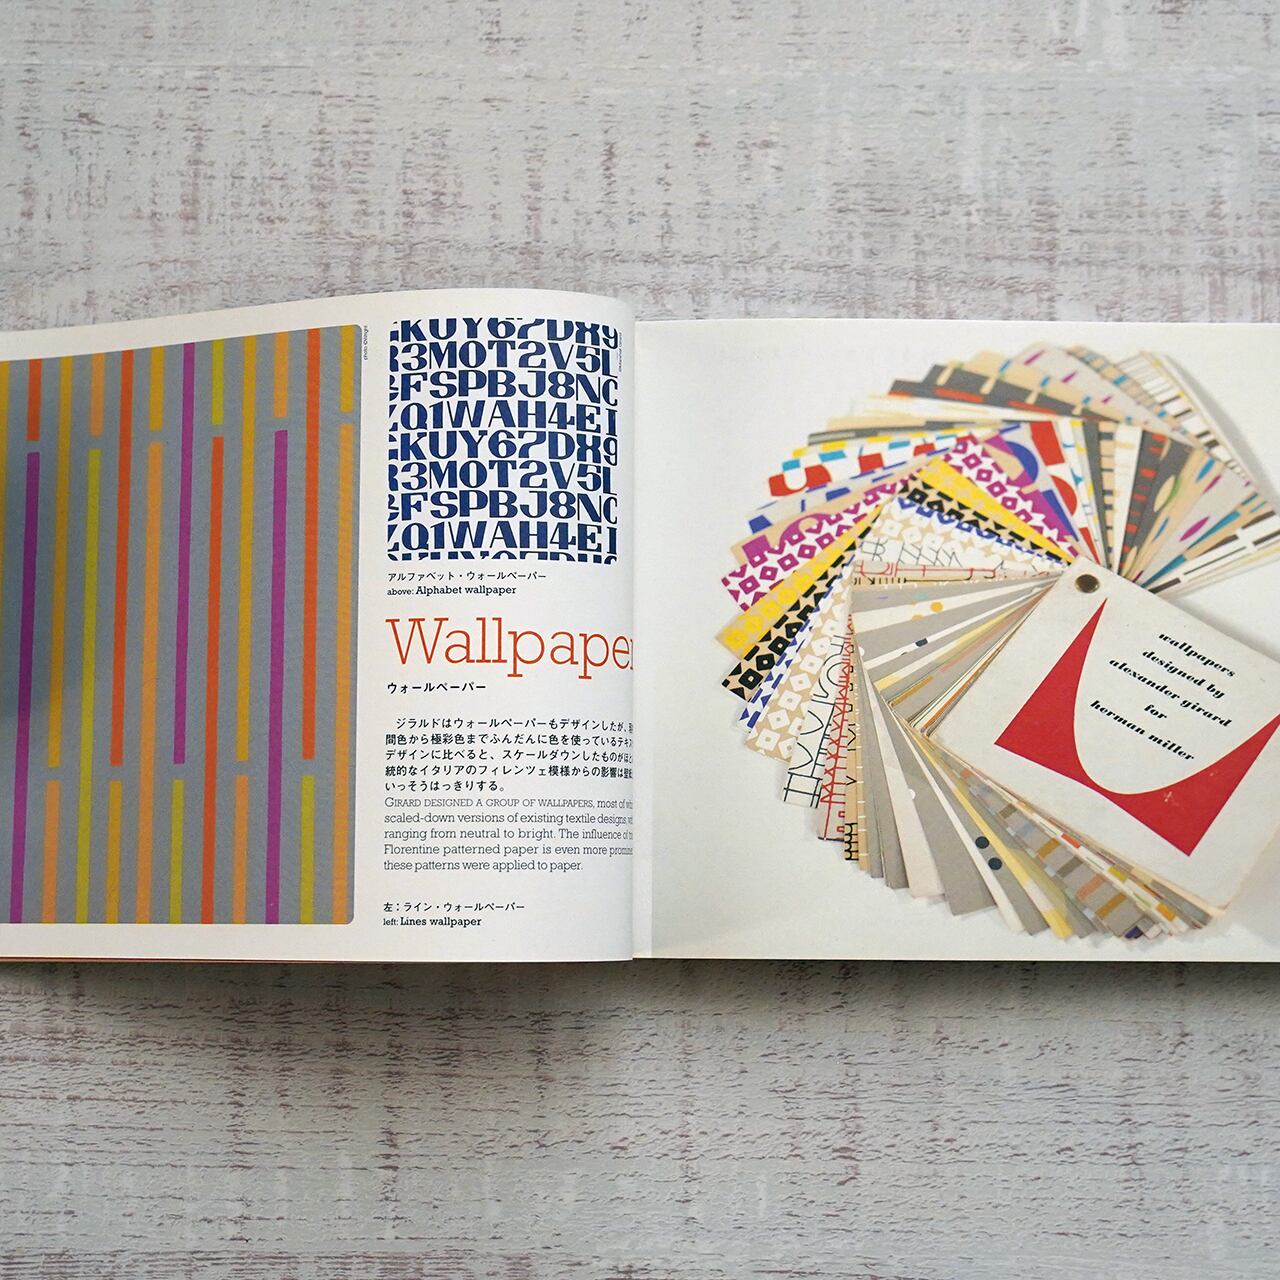 photo ©Wright
KUY67DX9
R3MOT2V5L
FSPBJ8NC
Q1WAH4EI
KUY67DX9
R3MOT2V5L
FSPBJ8NC
Q1WAH4EI
アルファベット・ウォールペーパー
above: Alphabet wallpaper
Wallpaper
ウォールペーパー
ジラルドはウォールペーパーもデザインしたが、
間色から極彩色までふんだんに色を使っているテキス
デザインに比べると、スケールダウンしたものがほと
統的なイタリアのフィレンツェ模様からの影響は壁紙
いっそうはっきりする。
GIRARD DESIGNED A GROUP OF WALLPAPERS, most of
scaled-down versions of existing textile designs,
ranging from neutral to bright. The influence of
Florentine patterned paper is even more
these patterns were applied to paper.
左：ライン・ウォールペーパー
left: Lines wallpaper
wallpapers
designed by
alexander girard
for
herman miller